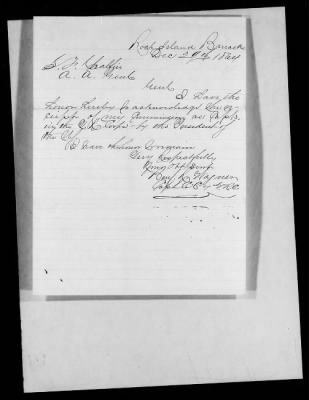 Rock Island Barracks
Dec 29th 1864
A. A. Genl
Genl
I have the
honor hereby to acknowledge the re
ceipt of my Commission as Capt
in the V. R. Corps by the President of
the U.
I have the honor to remain
Very Respectfully
Your Obt Servt
Wagner
Capt Co